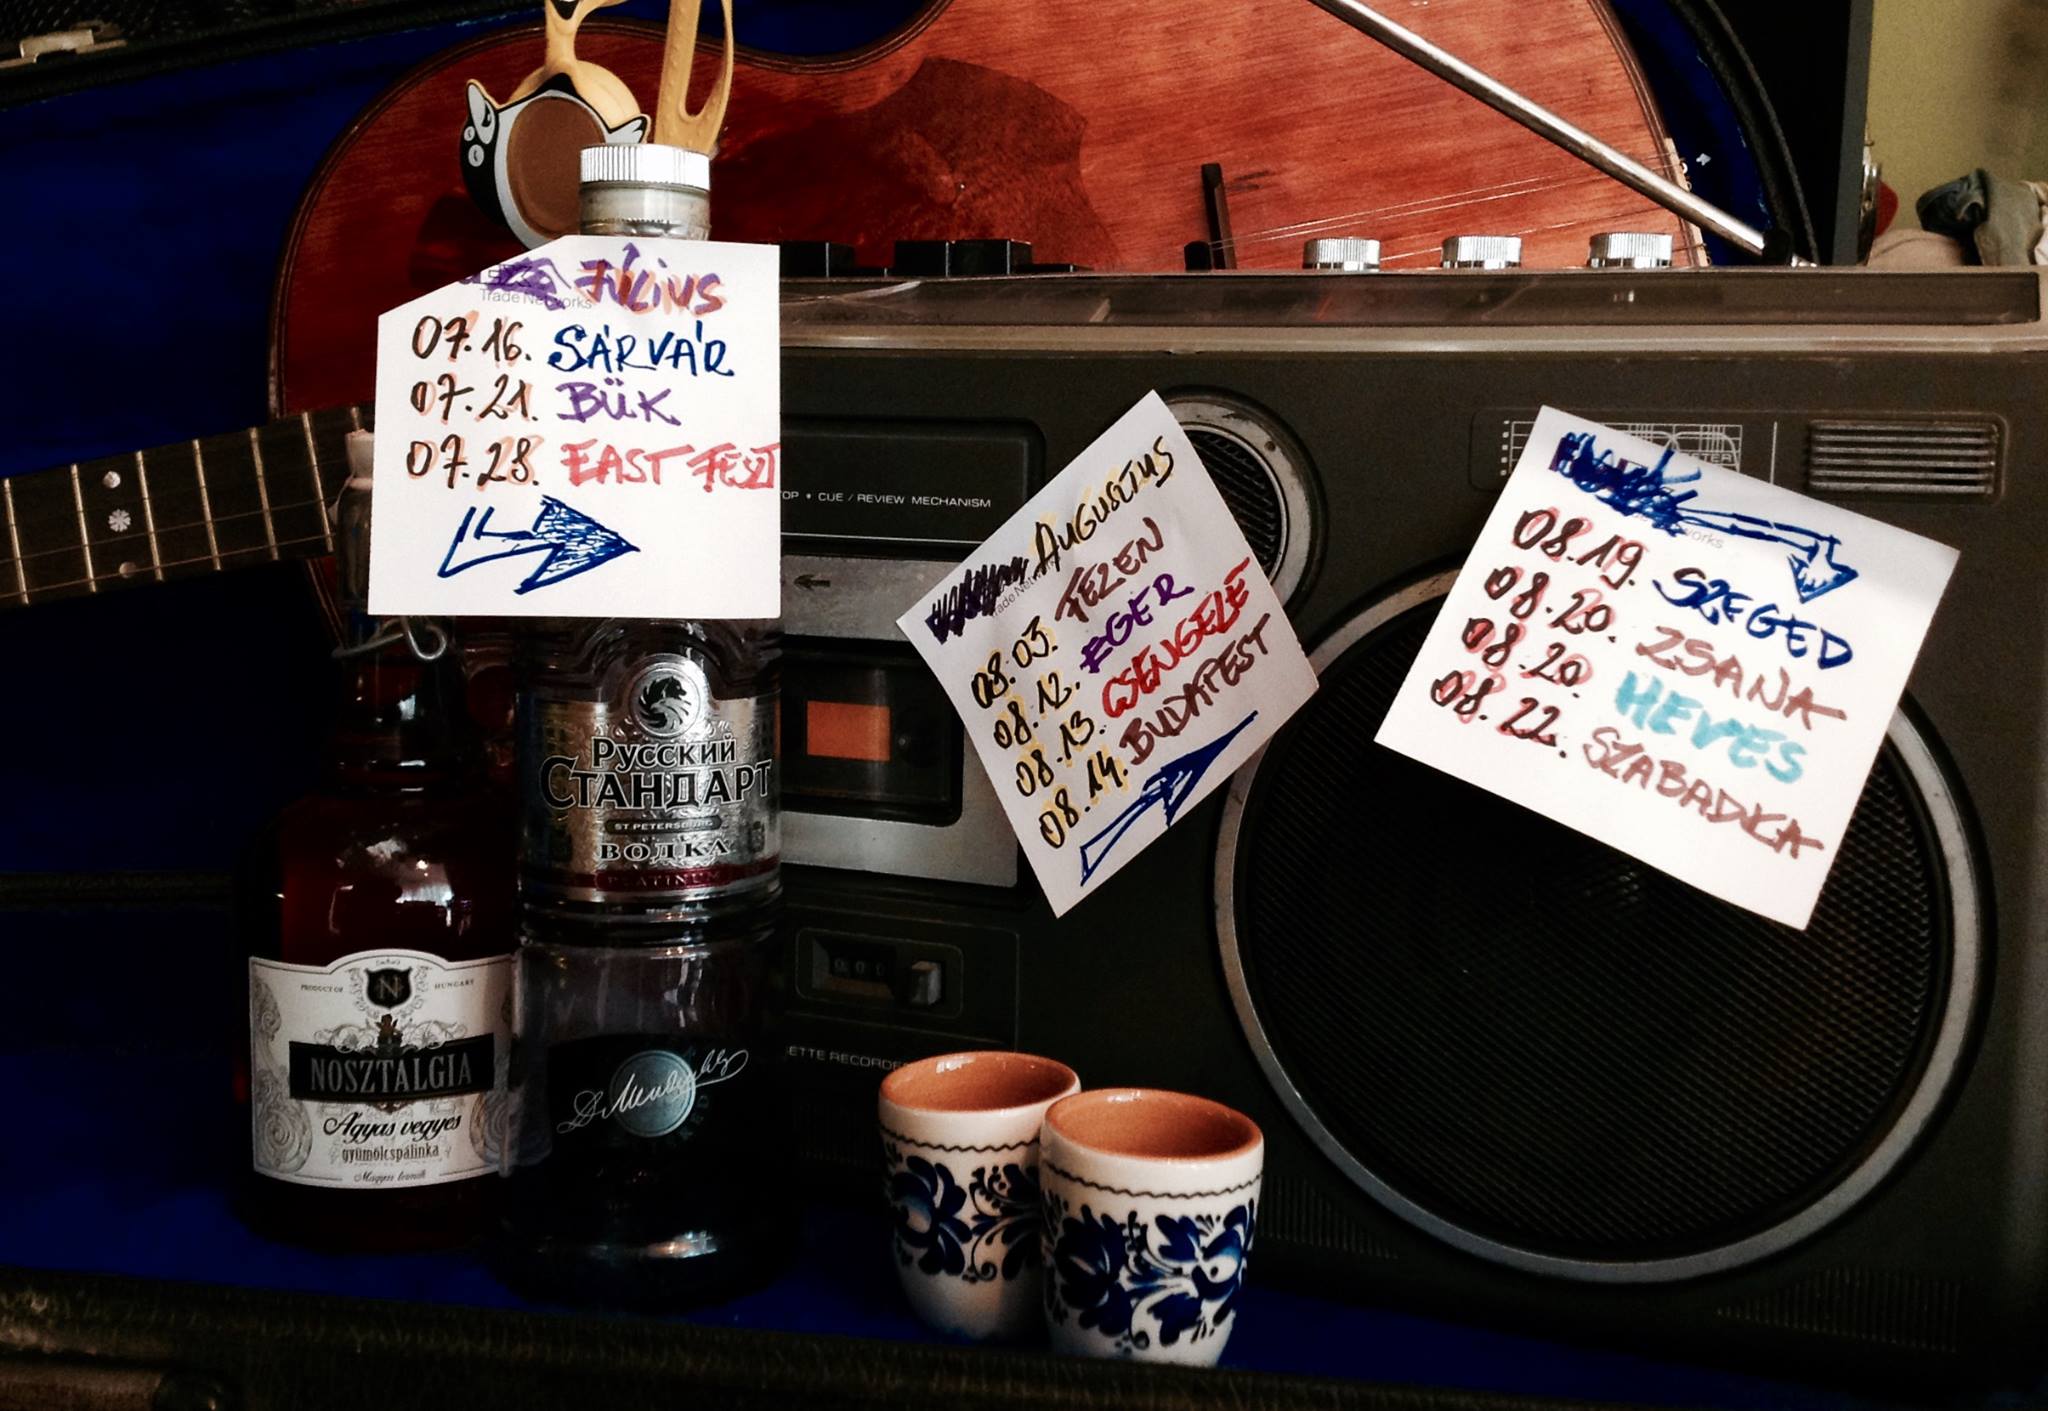 Július
Trade Networks
07.16. SÁRVÁR
07.21. BÜK
07.28. EAST FEST
AUGUSZTUS
08.03. FEZEN
08.12. EGER
08.13. CSENGELE
08.14. BUDAPEST
08.19. SZEGED
08.20. ZSANA
08.20. HEVES
08.22. SZABADKA
TOP • CUE / REVIEW MECHANISM
ETTE RECORDER
Русский
СТАНДАРТ
ST. PETERSBURG
ВОДКА
PLATINUM
PRODUCT OF HUNGARY
N
NOSZTALGIA
Ágyas vegyes
gyümölcspálinka